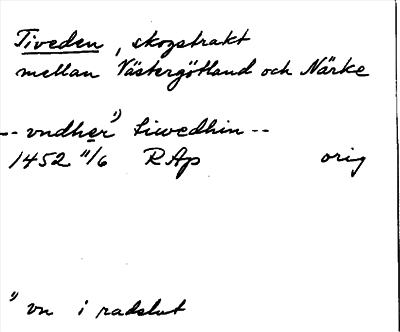 Tiveden, skogstrakt
mellan Västergötland och Närke
-- vndher¹⁾ Tiwedhin --
1452 11/6 RAp orig
¹⁾ vn i radslut